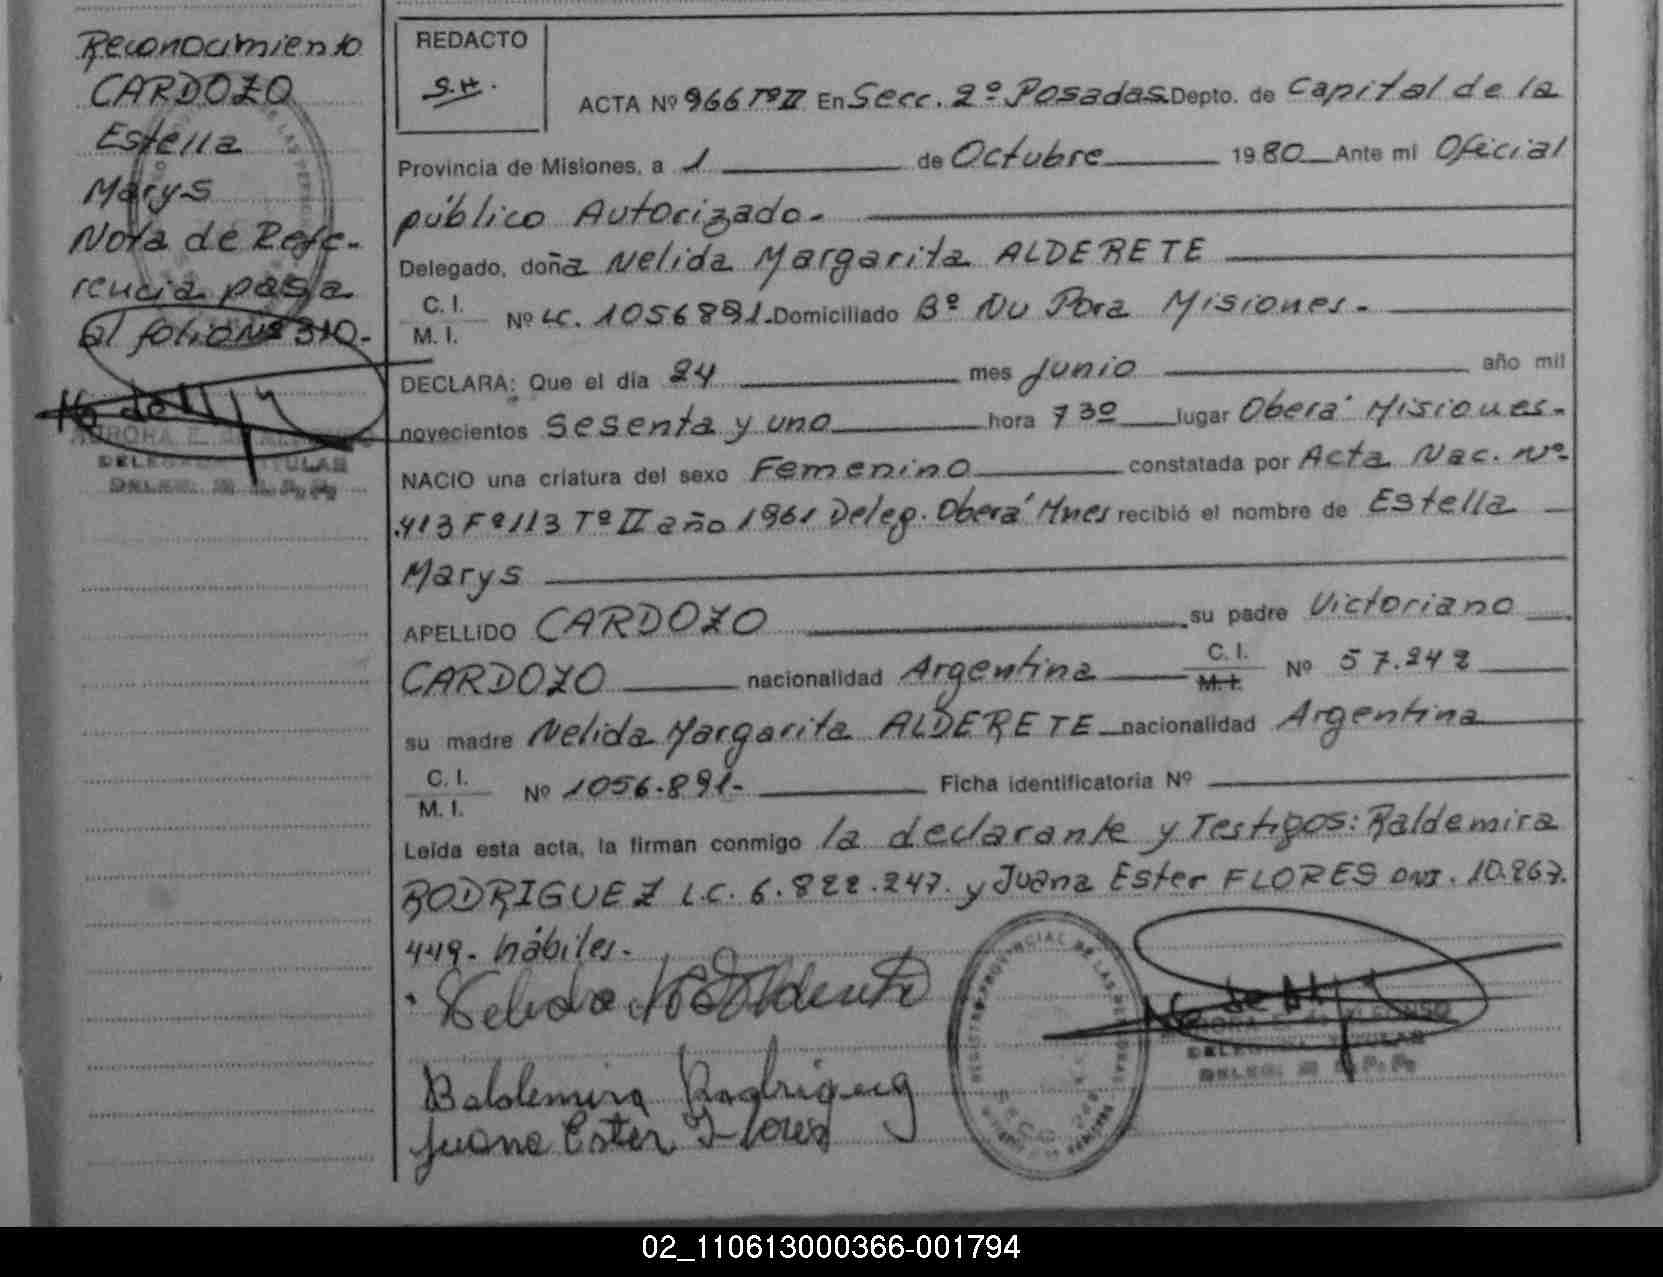 Reconocimiento
CARDOZO
Estella
Marys
Nota de Refe-
rencia pasa
al folio Nº 310.-
DELEGADA TITULAR
REDACTO
S.H.
ACTA Nº 966 Tº II En Secc. 2º Posadas Depto. de Capital de la
Provincia de Misiones, a 1 de Octubre 1980 Ante mi Oficial
público Autorizado.-
Delegado, doña Nelida Margarita ALDERETE
C. I.
M. I. Nº LC. 1056891. Domiciliado Bº Ñu Pora Misiones.-
DECLARA: Que el día 24 mes Junio año mil
novecientos Sesenta y uno hora 730 lugar Oberá Misiones.-
NACIO una criatura del sexo Femenino constatada por Acta Nac. Nº
413 Fº 113 Tº II año 1961 Deleg. Oberá Mnes recibió el nombre de Estella
Marys
APELLIDO CARDOZO su padre Victoriano
CARDOZO nacionalidad Argentina C. I. M. I. Nº 57.242
su madre Nelida Margarita ALDERETE nacionalidad Argentina
C. I.
M. I. Nº 1056.891- Ficha identificatoria Nº
Leída esta acta, la firman conmigo la declarante y Testigos: Baldemira
RODRIGUEZ L.C. 6.822.247. y Juana Ester FLORES DNI. 10.867.
449- hábiles.-
Nelida M Alderete
Baldemira Rodriguez
Juana Ester Flores
REGISTRO PROVINCIAL DE LAS PERSONAS
DELEGADA TITULAR
02_110613000366-001794